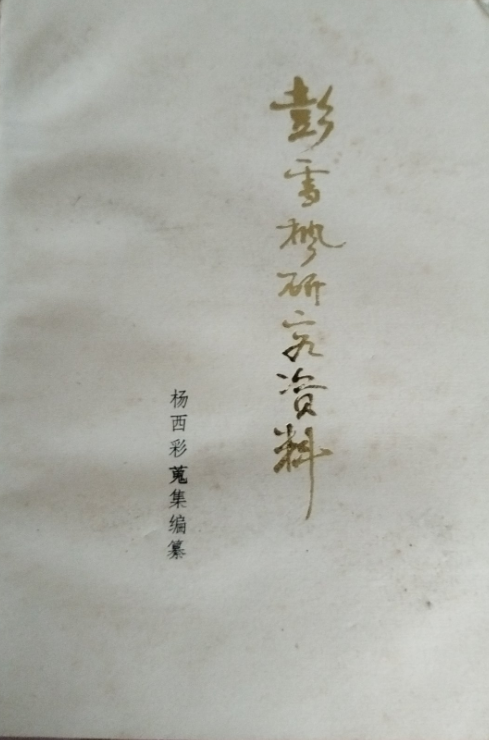 彭雪枫研究资料
杨西彩蒐集编纂